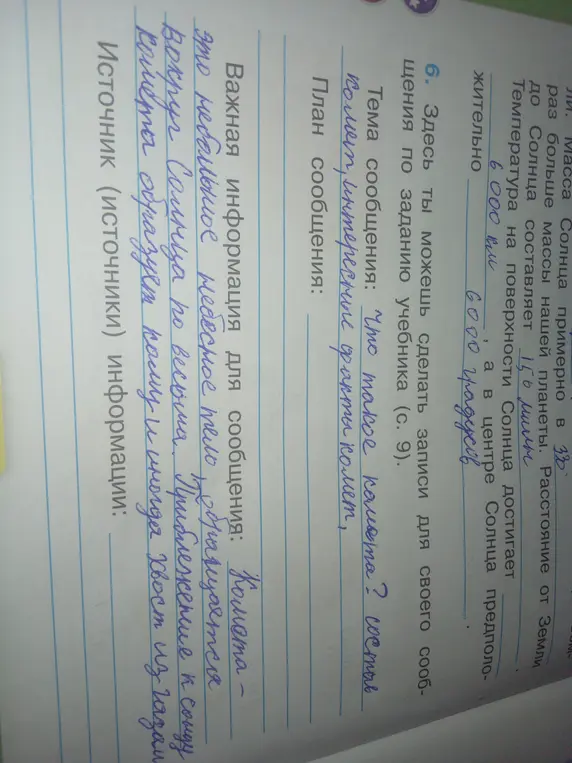 ли. Масса Солнца примерно в 33
раз больше массы нашей планеты. Расстояние от Земли
до Солнца составляет 150 милн
Температура на поверхности Солнца достигает
6 000 км, а в центре Солнца предполо-
жительно 6000 градусов.
6. Здесь ты можешь сделать записи для своего сооб-
щения по заданию учебника (с. 9).
Тема сообщения: Что такое комета? состав
комет, интересные факты комет,
План сообщения:
Важная информация для сообщения: Комета -
это небольшое небесное тело обращается
вокруг Солнца по весьма. Приближение к сонцу
кометы образует кому и иногда хвост из газа
Источник (источники) информации: